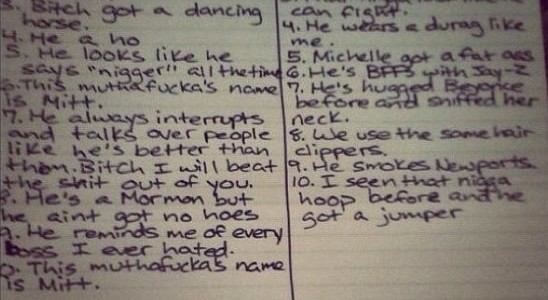 3. Bitch got a dancing
horse.
4. He a ho
5. He looks like he
says "nigger" all the time
6. This muthafucka's name
is Mitt.
7. He always interrupts
and talks over people
like he's better than
them. Bitch I will beat
the shit out of you.
8. He's a Mormon but
he aint got no hoes
9. He reminds me of every
boss I ever hated.
This muthafucka's name
is Mitt.
can fight.
4. He wears a durag like
me.
5. Michelle got a fat ass
6. He's BFFs with Jay-Z
7. He's hugged Beyonce
before and sniffed her
neck.
8. We use the same hair
clippers.
9. He smokes Newports.
10. I seen that nigga
hoop before and he
got a jumper